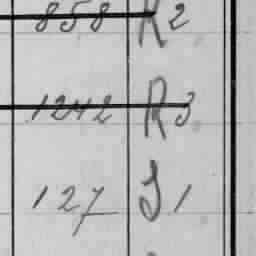 858 R2
1242 R3
127 S1